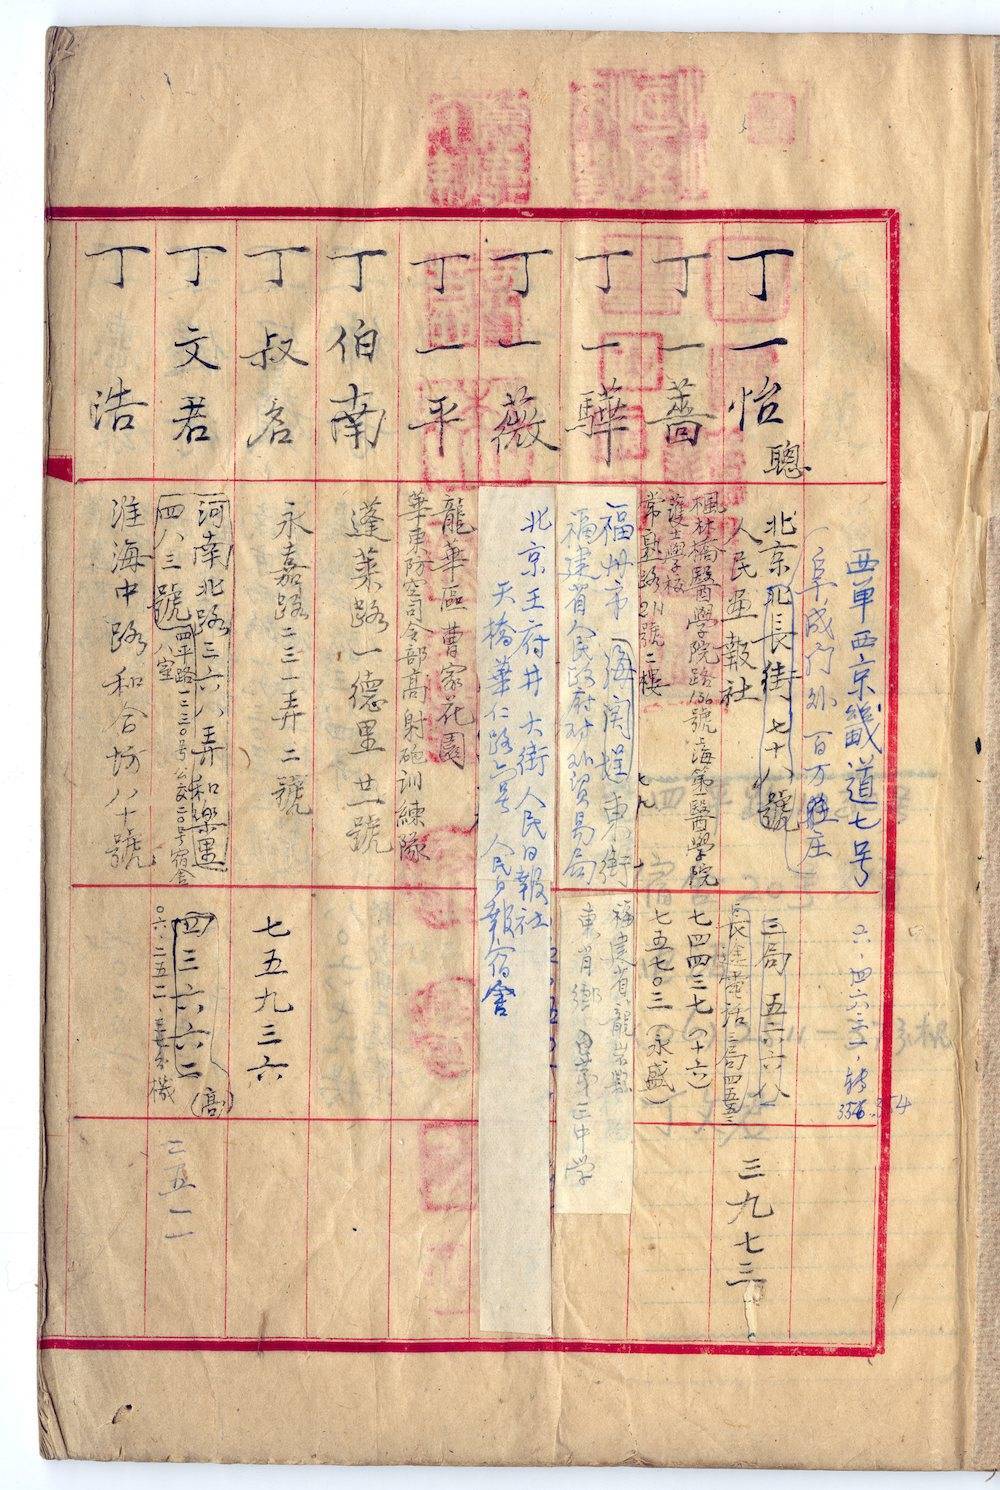 西單西京畿道七号
六·四六三·轉
356.354
阜成門外百万莊庄
丁一怡
聰
北京北長街七十八號
人民畫報社
三局 五六六八
長途電話三局四五五三
三九七三
丁一薔
楓林橋醫學院路136號上海第一醫學院
護士學校
常熟路211號二樓
七四四三七(十六)
七五七〇三(永盛)
丁一驊
福州市海関埕東街
福建省人民政府对外貿易局
福建省龍岩縣
東肖鄉 第三中学
丁一薇
北京王府井大街人民日報社
天橋華仁路六号 人民日報宿舍
丁一平
龍華區曹家花園
華東防空司令部高射砲訓練隊
丁伯南
蓬萊路一德里廿一號
丁叔
永嘉路二三一弄二號
七五九三六
丁文君
河南北路三六八弄和樂里
四八三號
四平路一二三〇号公交二〇号宿舍
八室
四三六六二(高)
〇六·二五二
二五一一
丁浩
淮海中路和合坊八十號